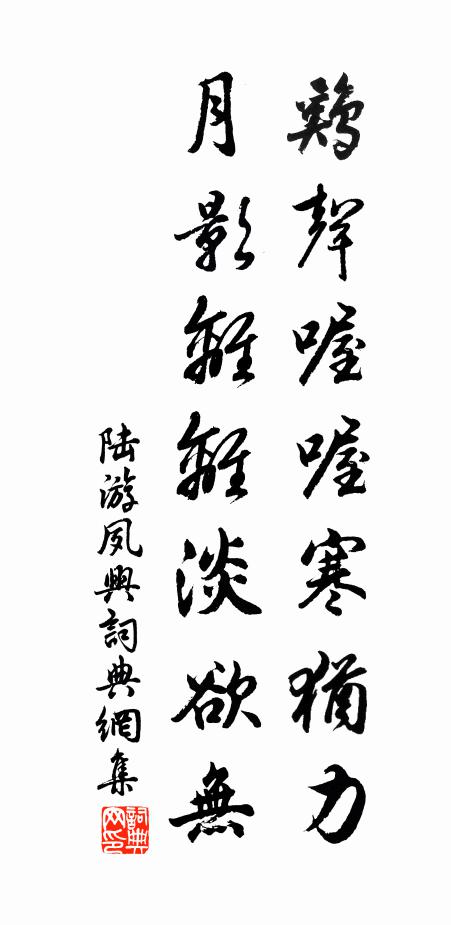 鷄聲喔喔寒猶力
月影離離淡欲無
陆游夙興詞典網集
詞典网印